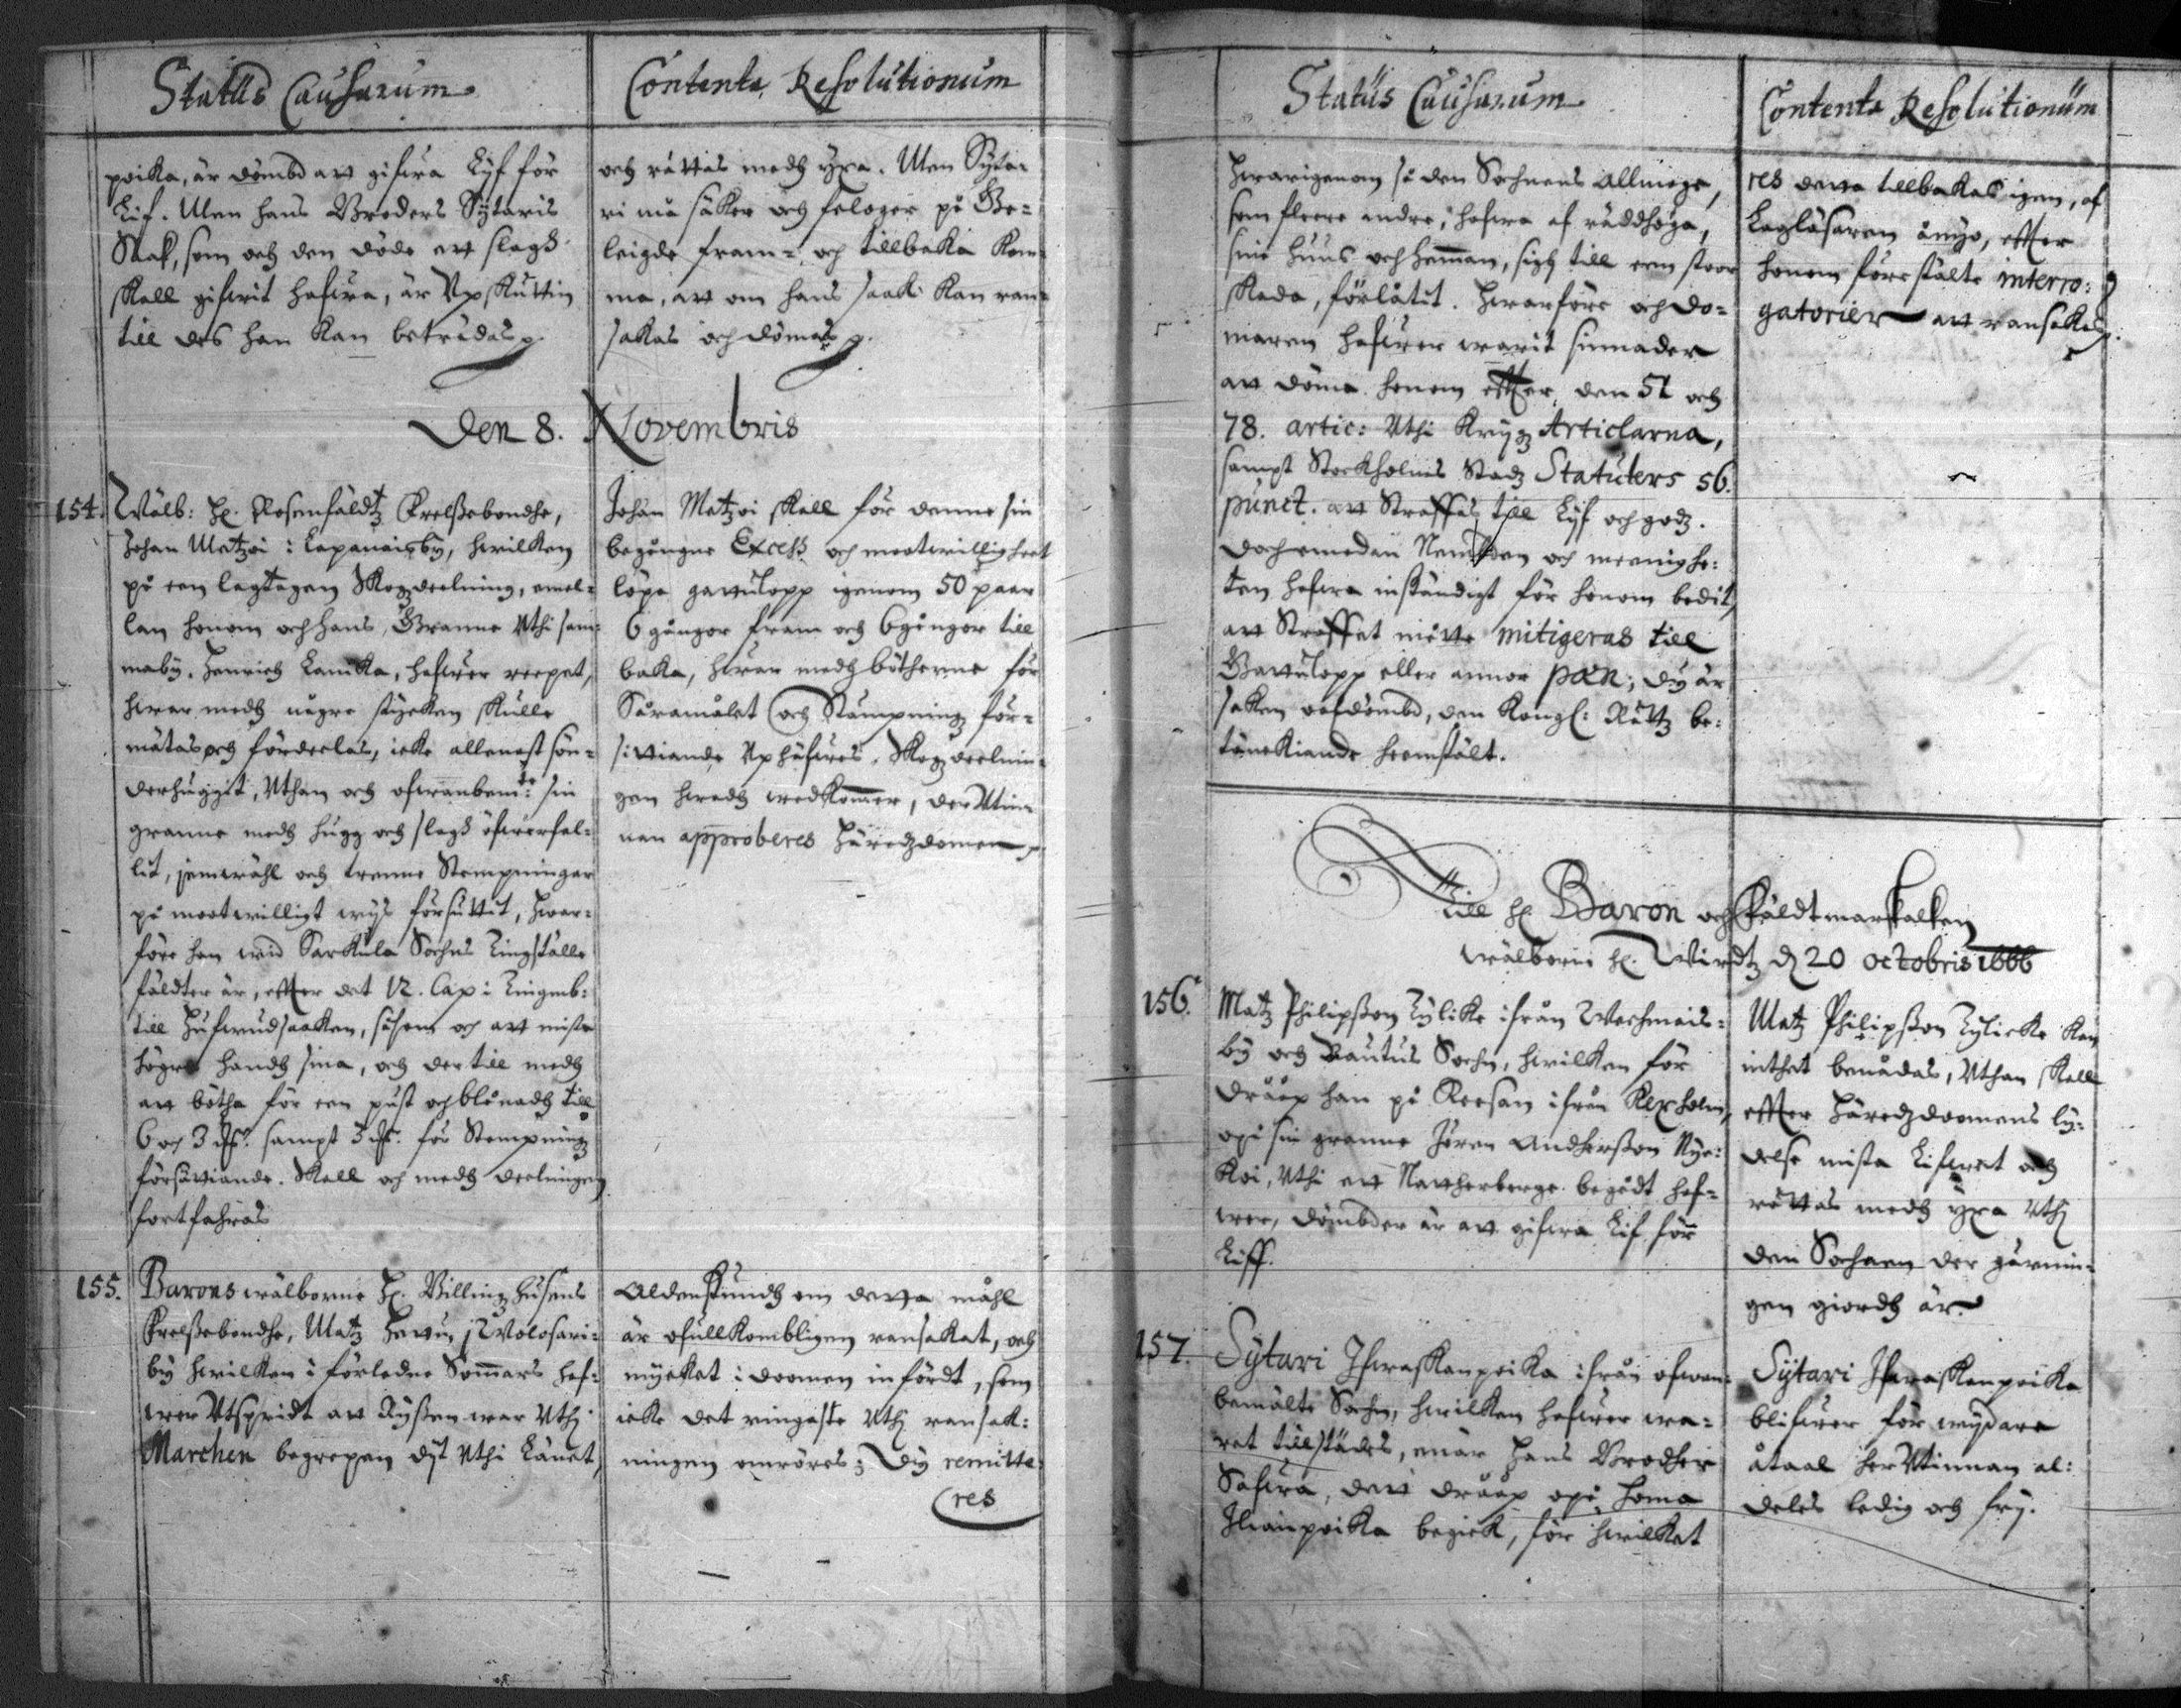 Status Causarum
poika, är dömbd att gifwa Lijf för
Lif. Men hans Broders Sÿtaris
Saak, som och den döde ett slagh
skall gifwit hafwa, är Vpskuttin
till des han kan beträdas p.
Contenta Resolutionum
och rättas medh yxa. Men Sÿta-
ri må säker och felogen på Be-
leigde fram- och tillbaka kom-
ma, att om hans saak kan ran-
sakas och dömas p.
Den 8. Novembris
154. Wälb: H. Rosenfäldtz Frelßebondhe,
Johan Matzoi i Lapanaisby, hwilken
på een lagtagen Skogzdeelning, emel-
lan honom och hans Granne Vthi sam-
maby, Henrich Lamka, hafwer reepet,
hwar medh någre stycken skulle
mätas och fördeelas, icke allenast sön-
derhuggit, Vthan och ofwanbem:te sin
granne medh hugg och slagh öfwerfal-
lit, jemwähl och trenne Stempningar
på mootwilligt wijs försuttit, hwar-
före han wid Sarkula Sochns Tingställe
fäldter är, efter det 12. Cap: Tingmb:
till Hufwudsaaken, såsom och att mista
högre handh sina, och der till medh
att bötha för een pust och blånadh till
6 och 3 dr. sampt 3 dr. för Stempningz
försittiande. Skall och medh deelningen
fortfahras
Johan Matzoi skall för denne sin
begångne Excess och mootwilligheet
löpa gattulopp igenom 50 paar
6 gånger fram och 6 gånger till
baka, hwar medh bötherne för
Såramålet och Stämpningz för-
sittiande Vphäfwes. Skogzdeelnin-
gen hwadh wedkommer, der Vtin-
nan approberes Häredzdomen p.
155. Barons wälborne H. Billingzhusens
Frelßebondhe, Matz Hattu, i Wolosari-
by hwilken i förledne Sommars haf-
wer Vtspridt att Rÿßen war Vthi
Marchen begrepen dÿt Vthi Länet,
Aldenstundh om detta måhl
är ofullkombligen ransakat, och
mÿcket i doomen infördt, som
icke det ringaste Vthi ransak-
ningen omröres; Dÿ remitte-
res
Status Causarum
Hwarigenom så den Sochnens Allmoge,
som fleere andre, hafwa af räddhoga,
sine Huus och Hemman, sigh till een stoor
skada, förlåtit. Hwarföre och do-
maren hafwer warit sinnader
att döma honom efter den 51 och
78. artic: Vthi Krigz Articlarna,
sampt Stockholms Stadz Statuters 56.
punct. att Straffas till Lijf och godz.
Doch emedan Nembden och meenighe-
ten hafwa inständigt för honom bedit,
att Straffet måtte mitigeras till
Gattulopp eller annor pæn; Dÿ är
saken oafdömbd, den Kongl: Rättz be-
tänckiande heemstält.
Contenta Resolutionum
res detta tillbakas igen, af
Laglässaren ånyo, efter
honom förestälte interro-
gatorier att ransakas p.
Till H. Baron och Fäldtmarskalken
wälborne H. Wirdtz d 20 octobris 1666
156. Matz Philipßon Tÿlike ifrån Wechmais-
by och Rautus Sochn, hwilken för
dråap han på Reesan ifrån Kexholm,
opå sin granne Jören Andherßon Nÿe-
koi, Vthi ett Nattherberge begådt haf-
wer, dömbder är att gifwa Lif för
Liff.
Matz Philipßon Tÿlicke kan
inthet benådas, Vthan skall
efter Häredzdoomens lÿ-
delse mista Lifwet och
rättas medh yxa Vthi
den Sochnen der gärnin-
gen giordh är.
157. Sÿtari Ifwaskanpoika ifrån ofwan-
bemälte Sochn, hwilken hafwer wa-
ret tillstädes, enär hans Brodher
Safwa, dett dråap opå Homa
Ilianpoika begick, för hwilket
Sÿtari Ifwaskanpoika
blifwer för wijdare
åtaal her Vtinnan al-
deles ledig och frÿ.